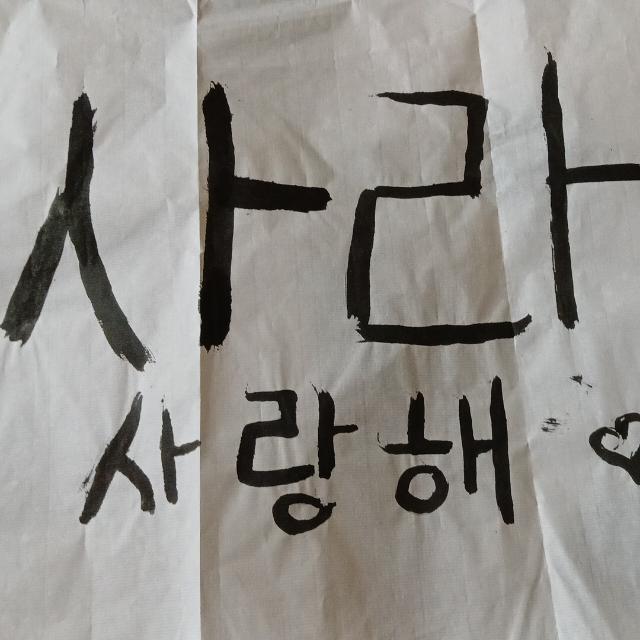 사라
사랑해♡